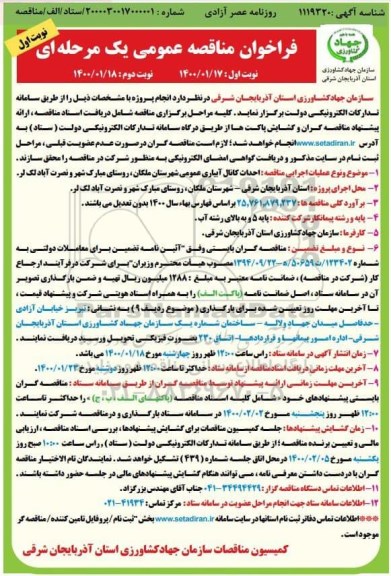 شناسه آگهی: ۱۱۱۹۳۲۰
روزنامه عصر آزادی
شماره: ۲۰۰۰۰۳۰۰۱۷۰۰۰۰۰۱/ستاد/الف/مناقصه
نوبت اول
فراخوان مناقصه عمومی یک مرحله‌ای
نوبت اول: ۱۴۰۰/۰۱/۱۷ نوبت دوم: ۱۴۰۰/۰۱/۱۸
جهاد کشاورزی
سازمان جهاد کشاورزی
استان آذربایجان شرقی
سازمان جهادکشاورزی استان آذربایجان شرقی در نظر دارد انجام پروژه با مشخصات ذیل را از طریق سامانه
تدارکات الکترونیکی دولت برگزار نماید. کلیه مراحل برگزاری مناقصه شامل دریافت اسناد مناقصه، ارائه
پیشنهاد مناقصه گران و گشایش پاکت ها از طریق درگاه سامانه تدارکات الکترونیکی دولت (ستاد) به
آدرس www.setadiran.ir انجام خواهد شد؛ لازم است مناقصه گران درصورت عدم عضویت قبلی، مراحل
ثبت نام در سایت مذکور و دریافت گواهی امضای الکترونیکی به منظور شرکت در مناقصه را محقق سازند.
۱- موضوع ونوع عملیات اجرایی مناقصه: احداث کانال آبیاری عمومی شهرستان ملکان، روستای مبارک شهر و نصرت آباد لک لر.
۲- محل اجرای پروژه: استان آذربایجان شرقی - شهرستان ملکان، روستای مبارک شهر و نصرت آباد لک لر.
۳- برآورد کلی مناقصه ها: ۲۵,۷۶۱,۰۷۹,۴۳۷ براساس فهارس بهاء سال ۱۴۰۰ بدون تعدیل می باشند.
۴- پایه و رشته پیمانکار شرکت کننده: پایه ۵ و به بالای رشته آب.
۵- کارفرما: سازمان جهادکشاورزی استان آذربایجان شرقی.
۶- نوع و مبلغ تضمین: مناقصه گران بایستی وفق "آئین نامه تضمین برای معاملات دولتی به
شماره ۱۲۳۴۰۲/ت۵۰۶۵۹ه - ۱۳۹۴/۰۹/۲۲ مصوب هیأت محترم وزیران" برای شرکت درفرآیند ارجاع
کار (شرکت در مناقصه)، ضمانت نامه معتبر به مبلغ: ۱۲۸۸ میلیون ریال تهیه و ضمن بارگذاری تصویر
آن در سامانه ستاد، اصل ضمانت نامه (پاکت الف) را به همراه اسناد هویتی شرکت و پیشنهاد قیمت،
تا آخرین مهلت روز تعیین شده برای بارگذاری (موضوع ردیف ۹) به نشانی: تبریز خیابان آزادی
- حدفاصل میدان جهاد و لاله - ساختمان شماره یک سازمان جهاد کشاورزی استان آذربایجان
شرقی- اداره امور پیمانها و قراردادها- اتاق ۲۳۰ بصورت فیزیکی تحویل و رسید دریافت نمایند.
۷- زمان انتشار آگهی در سامانه ستاد: راس ساعت ۱۲:۰۰ ظهر روز چهارشنبه مورخ ۱۴۰۰/۰۱/۱۸ می باشد.
۸- آخرین مهلت زمانی دریافت اسناد مناقصه از سامانه ستاد: حداکثر تا ساعت ۱۲:۰۰ ظهر روز دوشنبه مورخ ۱۴۰۰/۰۱/۲۳.
۹- آخرین مهلت زمانی ارائه پیشنهاد توسط مناقصه گران از طریق سامانه ستاد: مناقصه گران
بایستی پیشنهادهای خود شامل کلیه اسناد مناقصه (پاکتهای الف، ب، ج) را حداکثر تا ساعت
۱۲:۰۰ ظهر روز پنجشنبه مورخ ۱۴۰۰/۰۲/۰۲ در سامانه ستاد بارگذاری و در مناقصه شرکت نمایند.
۱۰- زمان گشایش پیشنهادها: جلسه کمیسیون مناقصات برای گشایش پیشنهادها، بررسی اسناد مناقصه، ارزیابی
مالی و تعیین برنده مناقصه؛ از طریق سامانه تدارکات الکترونیکی دولت (ستاد)، راس ساعت ۱۰:۰۰ صبح روز
یکشنبه مورخ ۱۴۰۰/۰۲/۰۵ در محل اتاق جلسه شماره (۴۳۹) تشکیل خواهد شد. نمایندگان تام الاختیار مناقصه
گران با دردست داشتن معرفی نامه، می توانند هنگام گشایش پیشنهادهای مالی در جلسه حضور داشته باشند.
۱۱- اطلاعات تماس دستگاه مناقصه گزار: ۳۴۴۹۴۴۲۹-۰۴۱ جناب آقای مهندس بزرگزاد.
۱۲- اطلاعات سامانه ستاد جهت انجام مراحل عضویت در سامانه ستاد: مرکز تماس: ۴۱۹۳۴-۰۲۱
***اطلاعات تماس دفاتر ثبت نام استانها در سایت سامانه www.setadiran.ir بخش "ثبت نام / پروفایل تامین کننده / مناقصه گر
موجود است.
کمیسیون مناقصات سازمان جهادکشاورزی استان آذربایجان شرقی